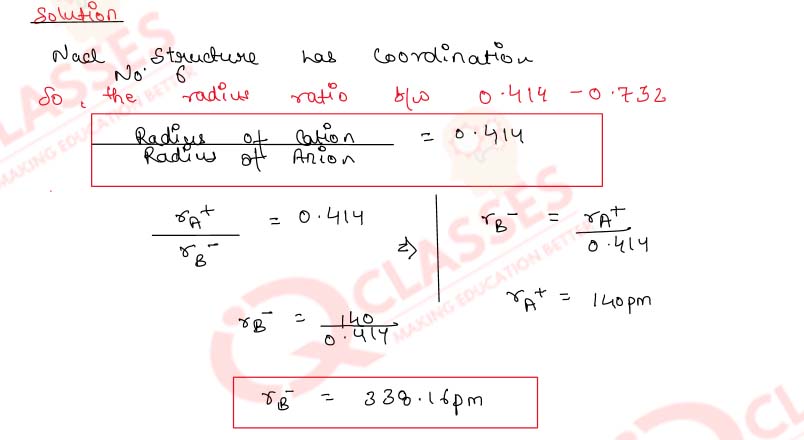 Solution
Nacl Structure has Coordination
No. 6
So, the radius ratio b/w 0.414 - 0.732
Radius of Cation / Radius of Anion = 0.414
rA+ / rB- = 0.414
⇒
rB- = rA+ / 0.414
rA+ = 140pm
rB- = 140 / 0.414
rB- = 338.16pm
IQ CLASSES
MAKING EDUCATION BETTER